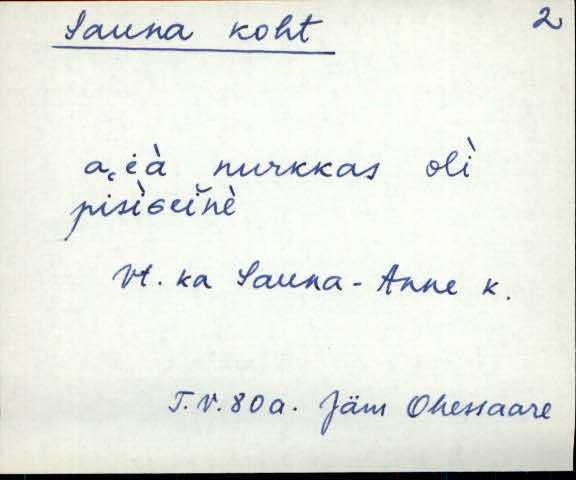 Sauna koht 2
nurkkas olì
vt. ka Sauna-Anne k.
T.V. 80a. Jäm Ohessaare